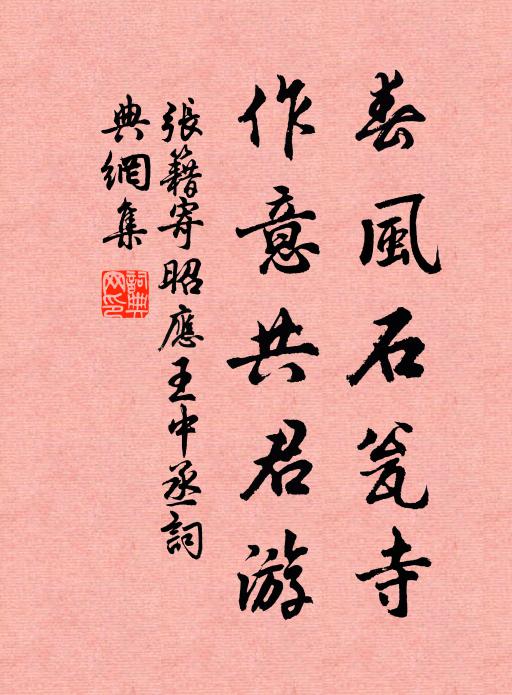 春風石瓮寺
作意共君游
張籍寄昭應王中丞詞
典網集
詞典網印